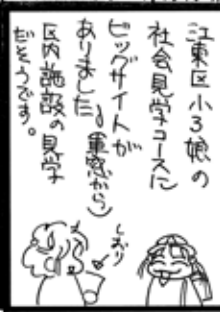 江東区小3娘の
社会見学コースに
ビッグサイトが
ありました(車窓から)
区内施設の見学
だそうです。
しおり